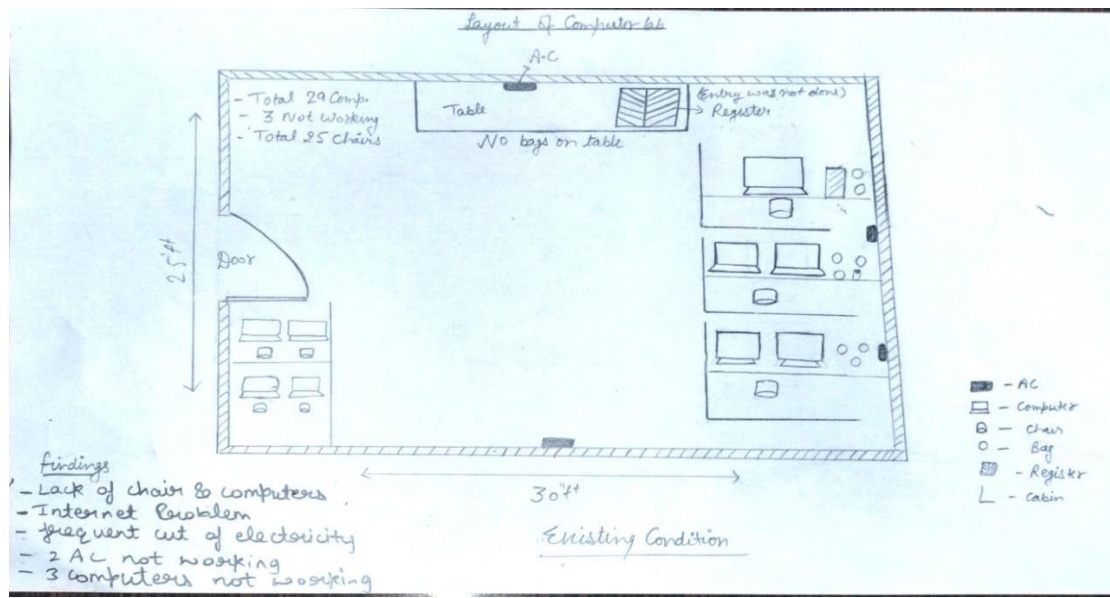 Layout of Computer lab
A.C
- Total 29 Comp.
- 3 Not Working
- Total 25 Chairs
Table
(Entry was not done)
Register
No bags on table
25"ft
Door
30"ft
Existing Condition
- AC
- Computer
- Chair
- Bag
- Register
- Cabin
findings
- Lack of chair & computers
- Internet Problem
- frequent cut of electricity
- 2 AC not working
- 3 computers not working